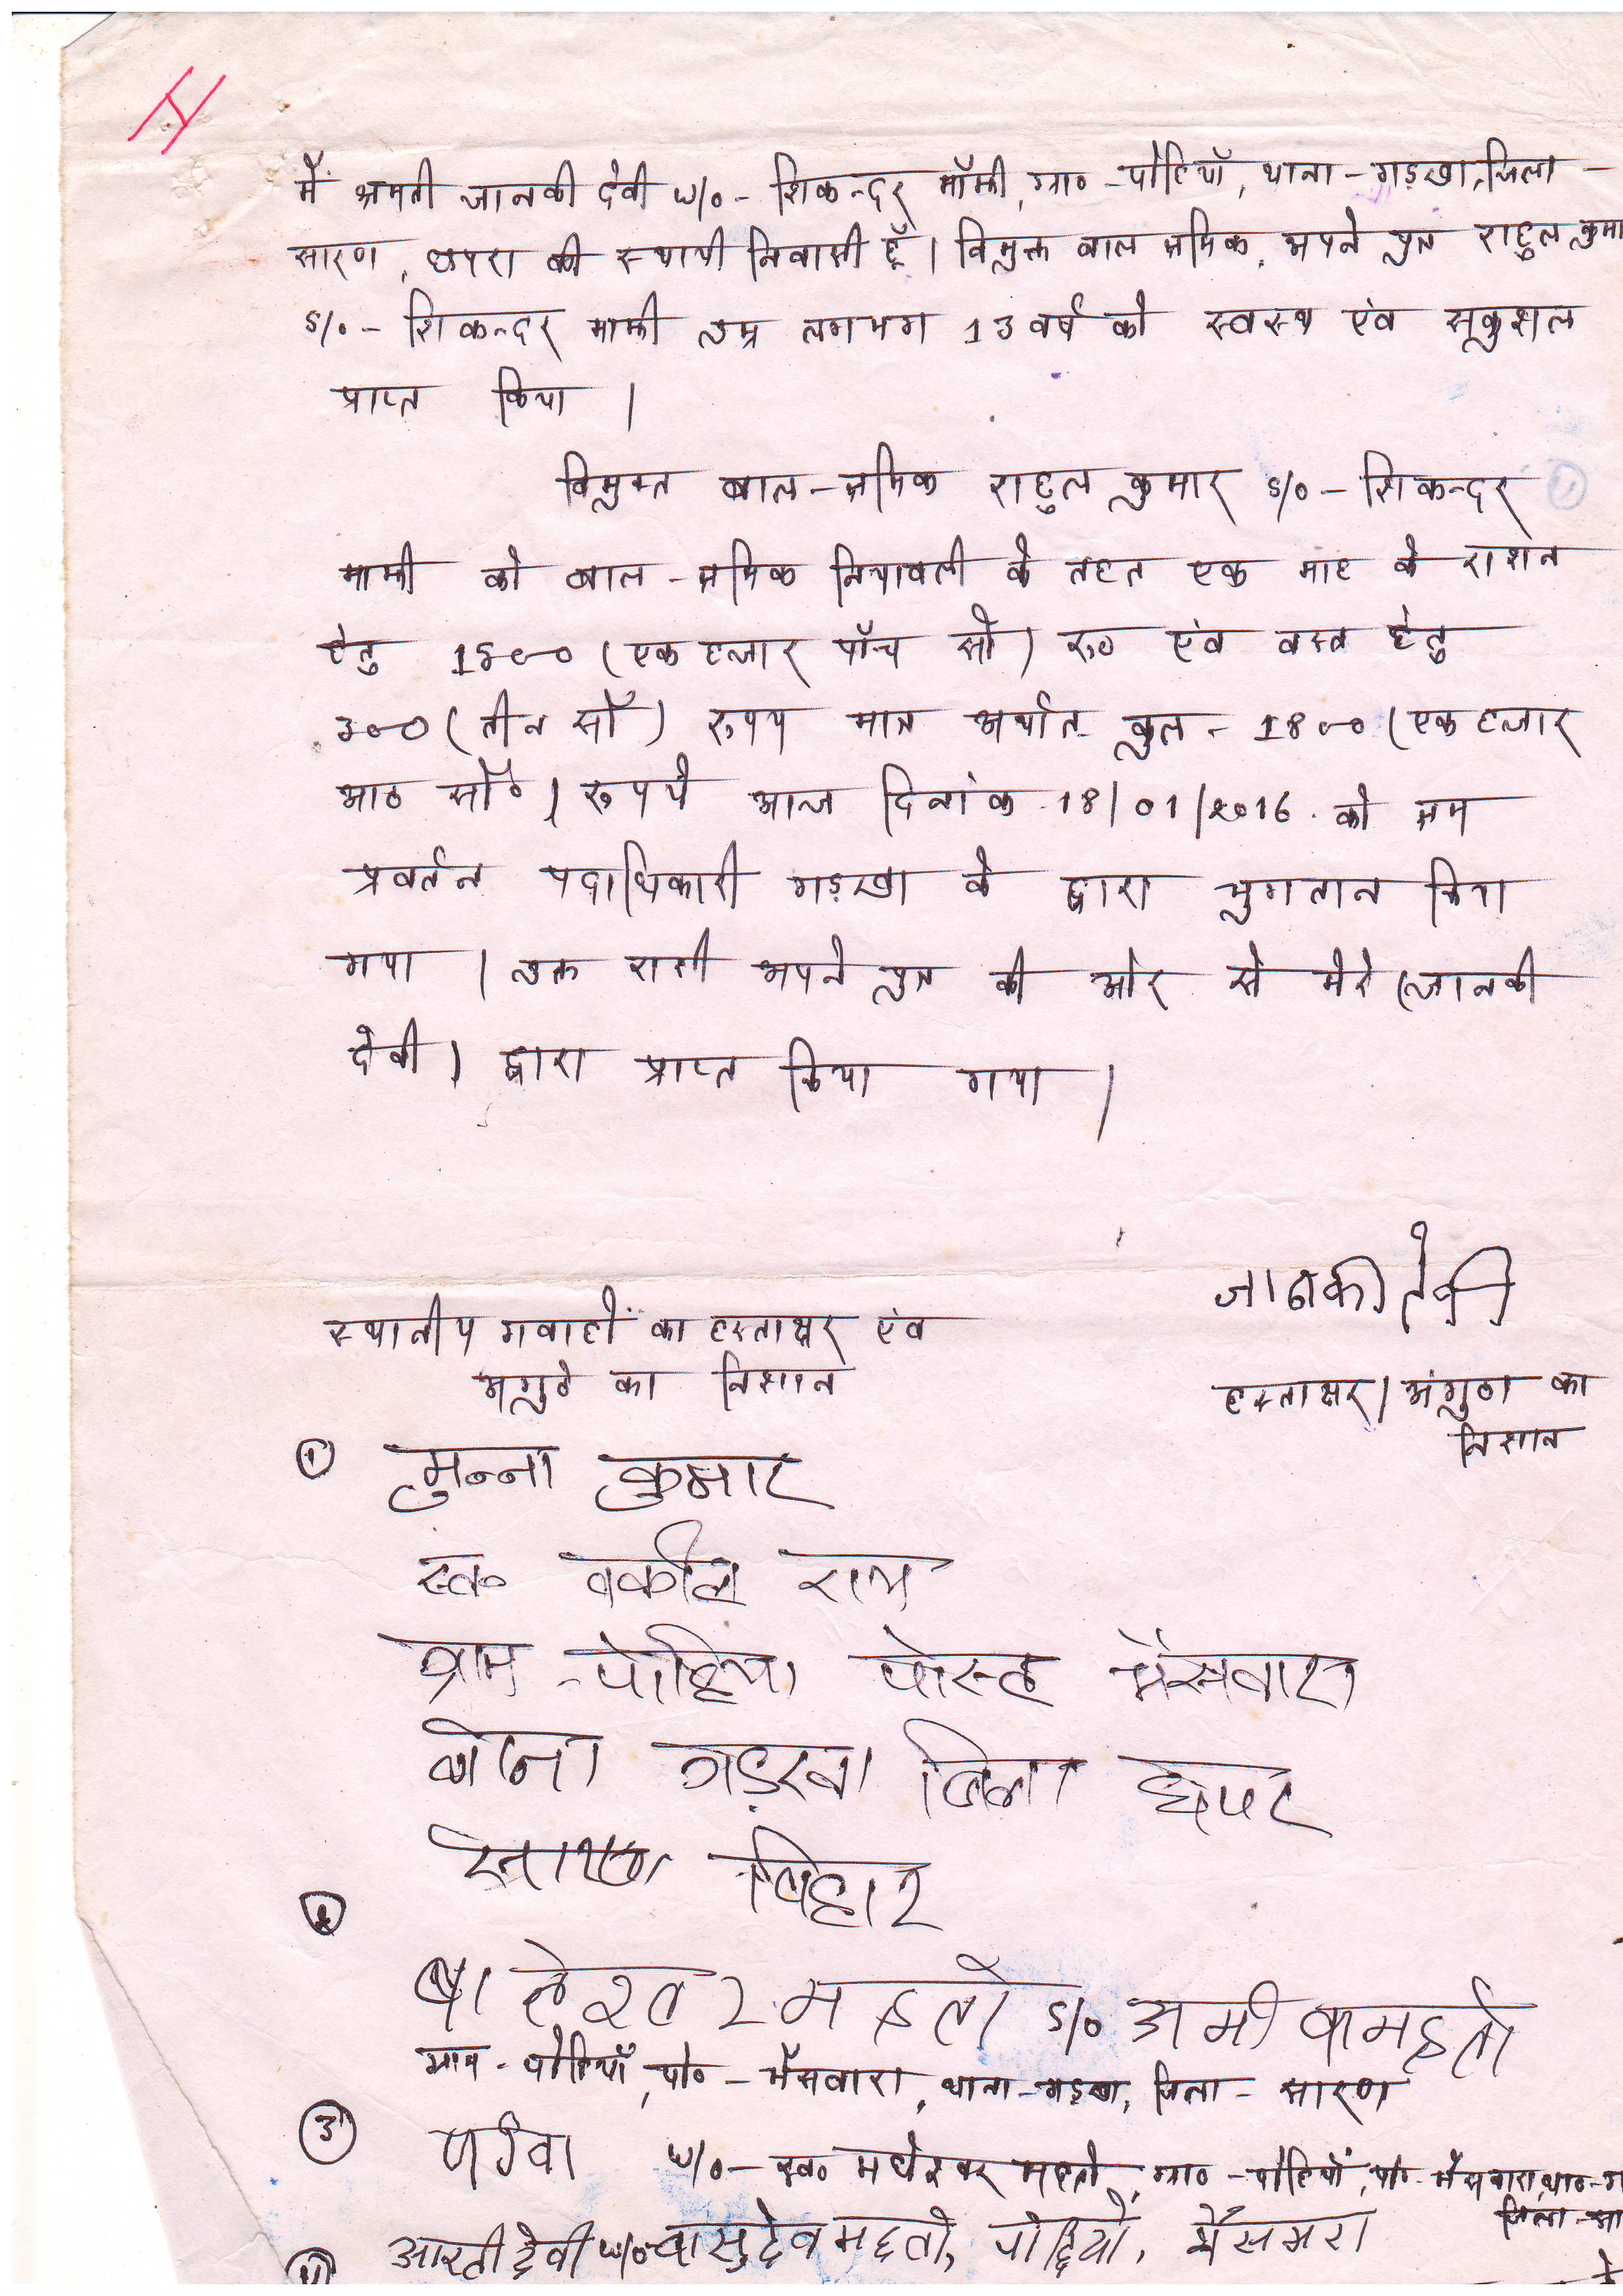 मैं श्रमती जानकी देवी w/o - शिकन्दर माँझी, ग्रा० - पोहियाँ, थाना - गड़खा, जिला -
सारण, छपरा की स्थायी निवासी हूँ। विमुक्त बाल श्रमिक, अपने पुत्र राहुल कुमा
s/o - शिकन्दर माझी उम्र लगभग 13 वर्ष को स्वस्थ एंव सूकुशल
प्राप्त किया।
विमुक्त बाल - श्रमिक राहुल कुमार s/o - शिकन्दर
माझी को बाल - श्रमिक नियावली के तहत एक माह के राशन
हेतु 1500 (एक हजार पाँच सौ) रु० एंव वस्त्र हेतु
300 (तीन सौ) रुपय मात्र अर्थात कुल - 1800 (एक हजार
आठ सौ०) रुपये आज दिनांक 18/01/2016. को श्रम
प्रवर्तन पदाधिकारी गड़खा के द्वारा भुगतान किया
गया। उक्त राशी अपने पुत्र की ओर से मेरे (जानकी
देवी) द्वारा प्राप्त किया गया।
जानकी देवी
स्थानीय गवाहों का हस्ताक्षर एंव
अगुठे का निशान
हस्ताक्षर/अंगुठा का
निशान
① मुन्ना कुमार
स्व० वकील राम
ग्राम - पोहिया पोस्ट भैंसवारा
थाना गड़खा जिला छपरा
सारण बिहार
②
बालेश्वर महतो s/o अमीका महतो
ग्राम - पोहियाँ, पो० - भैंसवारा, थाना - गड़खा, जिला - सारण
③ w/o - स्व० मधेश्वर महतो, ग्रा० - पोहियाँ, पो० - भैंसवारा, था० - ग
जिला - सा
आरती देवी w/o वासुदेव महतो, पोहियाँ, भैंसमरा